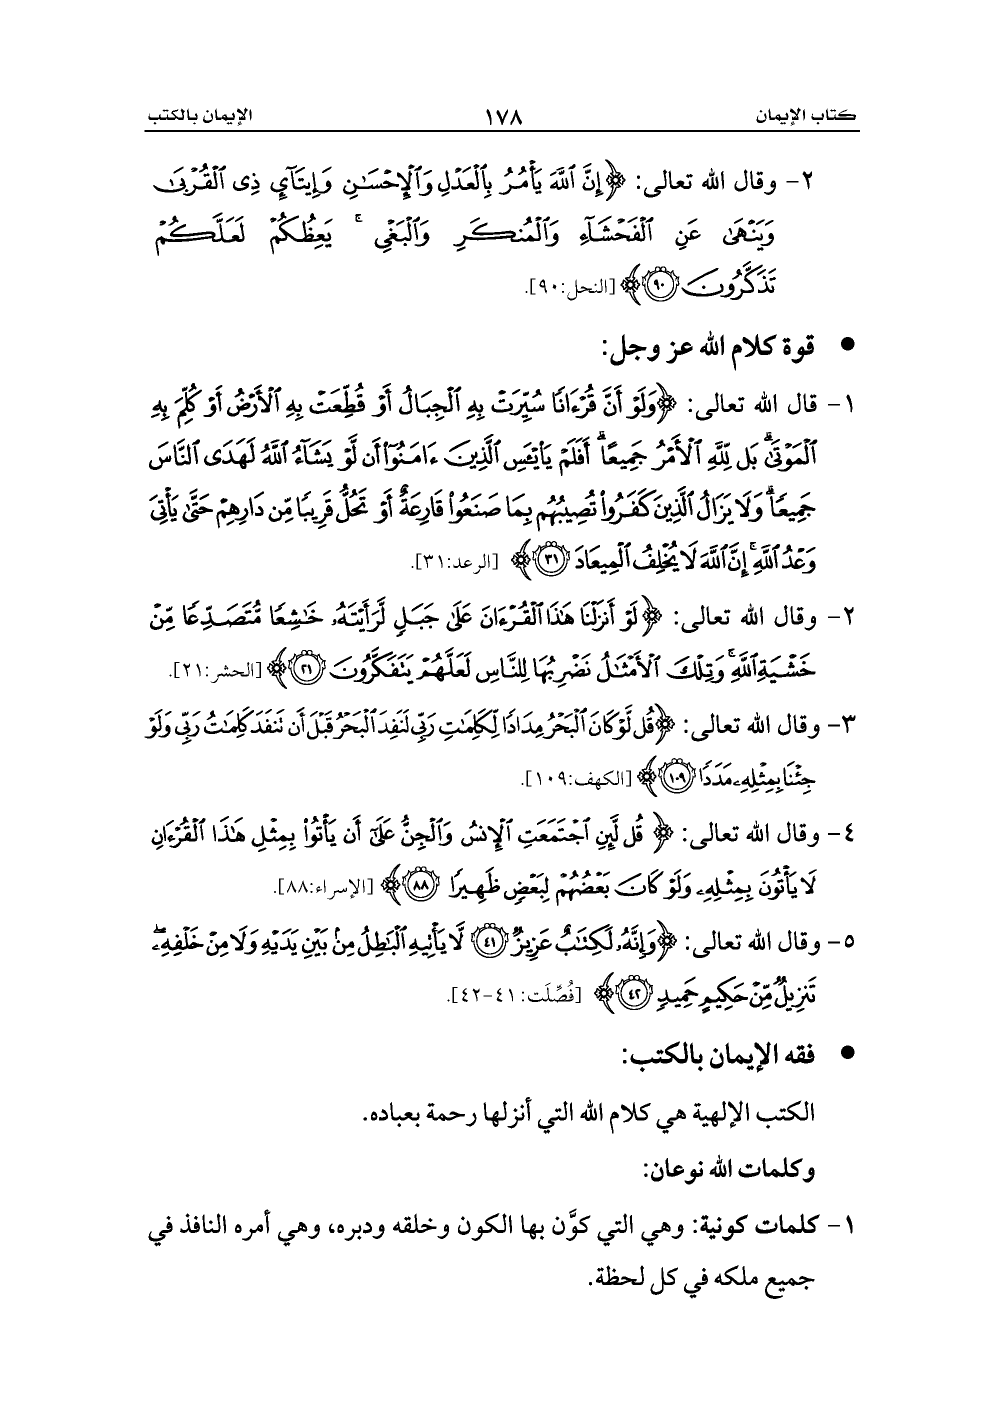 كتاب الإيمان ١٧٨ الإيمان بالكتب
٢- وقال الله تعالى: ﴿إِنَّ ٱللَّهَ يَأْمُرُ بِٱلْعَدْلِ وَٱلْإِحْسَٰنِ وَإِيتَآيِٕ ذِى ٱلْقُرْبَىٰ
وَيَنْهَىٰ عَنِ ٱلْفَحْشَآءِ وَٱلْمُنكَرِ وَٱلْبَغْىِ ۚ يَعِظُكُمْ لَعَلَّكُمْ
تَذَكَّرُونَ ۝٩٠﴾ [النحل:٩٠].
• قوة كلام الله عز وجل:
١- قال الله تعالى: ﴿وَلَوْ أَنَّ قُرْءَانًا سُيِّرَتْ بِهِ ٱلْجِبَالُ أَوْ قُطِّعَتْ بِهِ ٱلْأَرْضُ أَوْ كُلِّمَ بِهِ
ٱلْمَوْتَىٰ ۗ بَل لِّلَّهِ ٱلْأَمْرُ جَمِيعًا ۗ أَفَلَمْ يَا۟يْـَٔسِ ٱلَّذِينَ ءَامَنُوٓا۟ أَن لَّوْ يَشَآءُ ٱللَّهُ لَهَدَى ٱلنَّاسَ
جَمِيعًا ۗ وَلَا يَزَالُ ٱلَّذِينَ كَفَرُوا۟ تُصِيبُهُم بِمَا صَنَعُوا۟ قَارِعَةٌ أَوْ تَحُلُّ قَرِيبًا مِّن دَارِهِمْ حَتَّىٰ يَأْتِىَ
وَعْدُ ٱللَّهِ ۚ إِنَّ ٱللَّهَ لَا يُخْلِفُ ٱلْمِيعَادَ ۝٣١﴾ [الرعد:٣١].
٢- وقال الله تعالى: ﴿لَوْ أَنزَلْنَا هَٰذَا ٱلْقُرْءَانَ عَلَىٰ جَبَلٍ لَّرَأَيْتَهُۥ خَٰشِعًا مُّتَصَدِّعًا مِّنْ
خَشْيَةِ ٱللَّهِ ۚ وَتِلْكَ ٱلْأَمْثَٰلُ نَضْرِبُهَا لِلنَّاسِ لَعَلَّهُمْ يَتَفَكَّرُونَ ۝٢١﴾ [الحشر:٢١].
٣- وقال الله تعالى: ﴿قُل لَّوْ كَانَ ٱلْبَحْرُ مِدَادًا لِّكَلِمَٰتِ رَبِّى لَنَفِدَ ٱلْبَحْرُ قَبْلَ أَن تَنفَدَ كَلِمَٰتُ رَبِّى وَلَوْ
جِئْنَا بِمِثْلِهِۦ مَدَدًا ۝١٠٩﴾ [الكهف:١٠٩].
٤- وقال الله تعالى: ﴿قُل لَّئِنِ ٱجْتَمَعَتِ ٱلْإِنسُ وَٱلْجِنُّ عَلَىٰٓ أَن يَأْتُوا۟ بِمِثْلِ هَٰذَا ٱلْقُرْءَانِ
لَا يَأْتُونَ بِمِثْلِهِۦ وَلَوْ كَانَ بَعْضُهُمْ لِبَعْضٍ ظَهِيرًا ۝٨٨﴾ [الإسراء:٨٨].
٥- وقال الله تعالى: ﴿وَإِنَّهُۥ لَكِتَٰبٌ عَزِيزٌ ۝٤١ لَّا يَأْتِيهِ ٱلْبَٰطِلُ مِنۢ بَيْنِ يَدَيْهِ وَلَا مِنْ خَلْفِهِۦ ۖ
تَنزِيلٌ مِّنْ حَكِيمٍ حَمِيدٍ ۝٤٢﴾ [فُصِّلَت: ٤١-٤٢].
• فقه الإيمان بالكتب:
الكتب الإلهية هي كلام الله التي أنزلها رحمة بعباده.
وكلمات الله نوعان:
١- كلمات كونية: وهي التي كوَّن بها الكون وخلقه ودبره، وهي أمره النافذ في
جميع ملكه في كل لحظة.